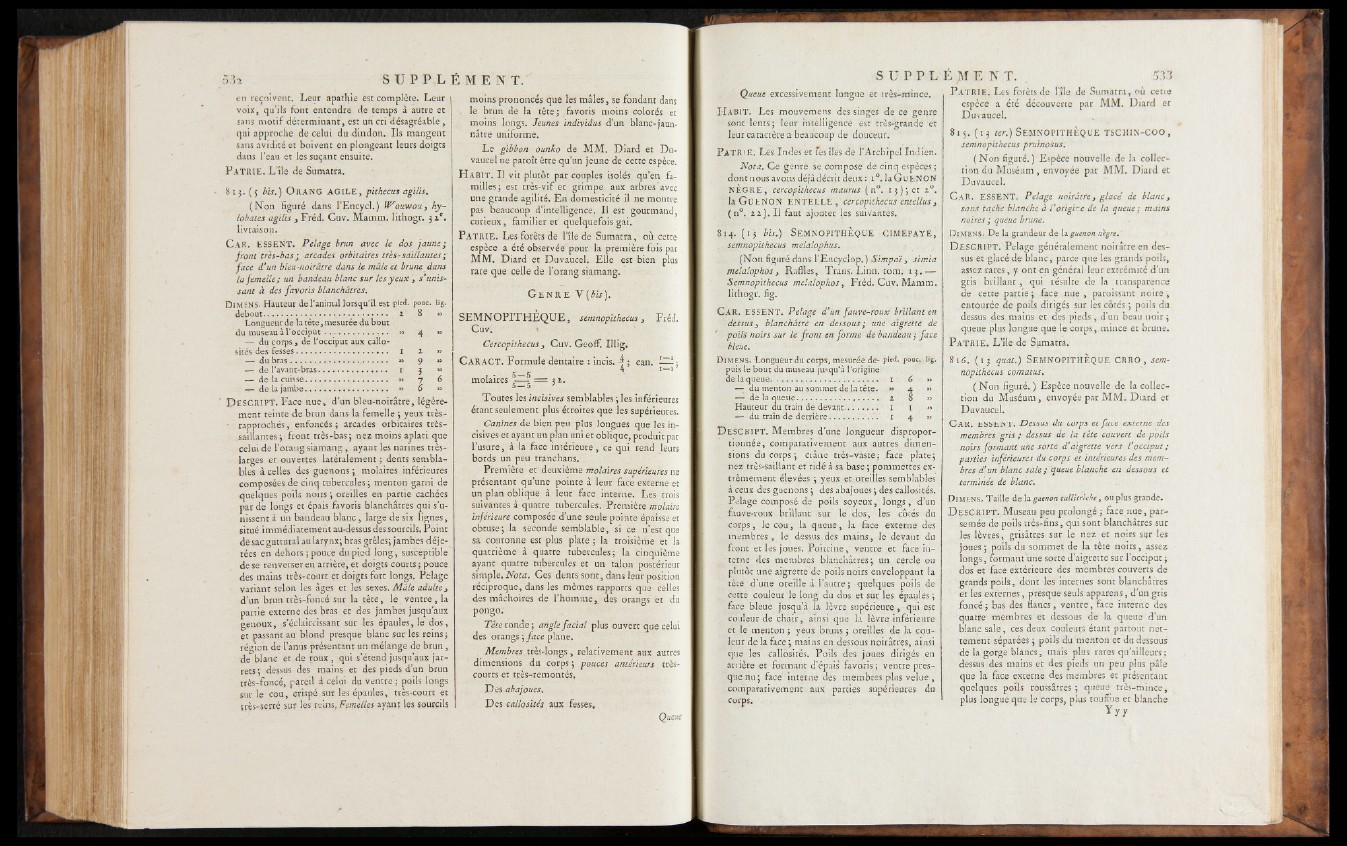 532
SUPPLÉMENT.
en reçoivent. Leur apathie est complète. Leur
voix, qu'ils font entendre de temps à autre et
sans motif déterminant, est un cri désagréable,
qui approche de celui du dindon. Ils mangent
sans avidité et boivent en plongeant leurs doigts
dans l'eau et les suçant ensuite.
PATRIE. L'île de Sumatra.
813. (5 bis.) ORANG AGILE, pithecus agilis.
(Non figuré dans l'Encycl.) Wouwou, hy-
lobates agilis, Fréd. Cuv. Mamm. lithogr. 32e.
livraison.
CAR. ESSENT. Pelage brun avec le dos jaune;
front très-bas; arcades orbitaires très-saillantes;
face d'un bleu-noirâtre dans le mâle et brune dans
la femelle; un bandeau blanc sur les yeux, s'unis-
sant à des favoris blanchâtres.
DIMENS. Hauteur de l'animal lorsqu'il est pied. pouc. lig.
debout.......................... 2 8 »
Longueur de la tête, mesurée du bout
du museau à l'occiput............. » 4 »
— du corps, de l'occiput aux callo-
sités des fesses................... 1 2 »
— du bras..................... » 9 »
— de l'avant-bras.............. 1 3 »
— de la cuisse................. » 7 6
— de la jambe.................. » 6 »
DESCRIPT. Face nue, d'un bleu-noirâtre, légère-
ment teinte de brun dans la femelle; yeux très-
rapprochés, enfoncés; arcades orbitaires très-
saillantes; front très-bas; nez moins aplati que
celui de l'orang siamang, ayant les narines très-
larges et ouvertes latéralement; dents sembla-
bles à celles des guenons; molaires inférieures
composées de cinq tubercules; menton garni de
quelques poils noirs; oreilles en partie cachées
par de longs et épais favoris blanchâtres qui s'u-
nissent à un bandeau blanc, large de six lignes,
situé immédiatement au-dessus des sourcils. Point
de sac guttural au larynx; bras grêles; jambes déje-
tées en dehors; pouce du pied long, susceptible
de se renverser en arrière, et doigts courts; pouce
des mains très-court et doigts fort longs. Pelage
variant selon les âges et les sexes. Mâle adulte,
d'un brun très-foncé sur la tête, le ventre, la
partie externe des bras et des jambes jusqu'aux
genoux, s'éclaircissant sur les épaules, le dos,
et passant au blond presque blanc sur les reins;
région de l'anus présentant un mélange de brun,
de blanc et de roux, qui s'étend jusqu'aux jar-
rets; dessus des mains et des pieds d'un brun
très-foncé, pareil à celui du ventre; poils longs
sur le cou, crispé sur les épaules, très-court et
très-serré sur les reins. Femelles ayant les sourcils
moins prononcés que les mâles, se fondant dans
le brun de la tête; favoris moins colorés et
moins longs. Jeunes individus d'un blanc-jaun-
nâtre uniforme.
Le gibbon ounko de MM. Diard et Du-
vaucel ne paroît être qu'un jeune de cette espèce.
HABIT. Il vit plutôt par couples isolés qu'en fa-
milles; est très-vif et grimpe aux arbres avec
une grande agilité. En domesticité il ne montre
pas beaucoup d'intelligence. Il est gourmand,
curieux, familier et quelquefois gai.
PATRIE. Les forêts de l'île de Sumatra, où cette
espèce a été observée pour la première fois par
MM. Diard et Duvaucel. Elle est bien plus
rare que celle de l'orang siamang.
GENRE V (bis).
SEMNOPITHÈQUE, semnopithecus, Fréd.
Cuv.
Cercopithecus, Cuv. Geoff. Illig.
CARACT. Formule dentaire : incis. 4/4; can. 1—1/1—1;
molaires 5—5/5—5 = 32.
Toutes les incisives semblables; les inférieures
étant seulement plus étroites que les supérieures.
Canines de bien peu plus longues que les in-
cisives et ayant un plan uni et oblique, produit par
l'usure, à la face intérieure, ce qui rend leurs
bords un peu tranchans.
Première et deuxième molaires supérieures ne
présentant qu'une pointe à leur face externe et
un plan oblique à leur face interne. Les trois
suivantes à quatre tubercules. Première molaire
inférieure composée d'une seule pointe épaisse et
obtuse; la seconde semblable, si ce n'est que
sa couronne est plus plate; la troisième et la
quatrième à quatre tubercules; la cinquième
ayant quatre tubercules et un talon postérieur
simple. Nota. Ces dents sont, dans leur position
réciproque, dans les mêmes rapports que celles
des mâchoires de l'homme, des orangs et du
pongo.
Tête ronde; angle facial plus ouvert que celui
des orangs; face plane.
Membres très-longs, relativement aux autres
dimensions du corps; pouces antérieurs très-
courts et très-remontés.
Des abajoues.
Des callosités aux fesses.
Queue
SUPPLÉMENT.
533
Queue excessivement longue et très-mince.
HABIT. Les mouvemens des singes de ce genre
sont lents; leur intelligence est très-grande et
leur caractère a beaucoup de douceur.
PATRIE. Les Indes et les îles de l'Archipel Indien.
Nota. Ce genre se compose de cinq espèces;
dont nous avons déjà décrit deux: 1°. la GUENON
NÈGRE, cercopithecus maurus (n°. 13); et 2°.
la GUENON ENTELLE, cercopithecus entellus,
(n°. 22). Il faut ajouter les suivantes.
814. (13 bis.) SEMNOPITHÈQUE CIMEPAYE,
semnopithecus melalophus.
(Non figuré dans l'Encyclop.) Simpaï, simia
melalophos, Raffles, Trans. Linn. tom. 13. —
Semnopithecus melalophos, Fréd. Cuv. Mamm.
lithogr. fig.
CAR. ESSENT. Pelage d'un fauve-roux brillant en
dessus, blanchâtre en dessous; une aigrette de
poils noirs sur le front en forme de bandeau; face
bleue.
DIMENS. Longueur du corps, mesurée de- pied. pouc. lig.
puis le bout du museau jusqu'à l'origine
de la queue....................... 1 6 »
— du menton au sommet de la tête. » 4 »
— de la queue................. 2 8 »
Hauteur du train de devant........ 1 1 »
— du train de derrière........... 1 4 »
DESCRIPT. Membres d'une longueur dispropor-
tionnée, comparativement aux autres dimen-
sions du corps; crâne très-vaste; face plate;
nez très-saillant et ridé à sa base; pommettes ex-
trêmement élevées; yeux et oreilles semblables
à ceux des guenons; des abajoues; des callosités.
Pelage composé de poils soyeux, longs, d'un
fauve-roux brillant sur le dos, les côtés du
corps, le cou, la queue, la face externe des
membres, le dessus des mains, le devant du
front et les joues. Poitrine, ventre et face in-
terne des membres blanchâtres; un cercle ou
plutôt une aigrette de poils noirs enveloppant la
tête d'une oreille à l'autre; quelques poils de
cette couleur le long du dos et sur les épaules;
face bleue jusqu'à la lèvre supérieure, qui est
couleur de chair, ainsi que la lèvre inférieure
et le menton; yeux bruns; oreilles de la cou-
leur de la face; mains en dessous noirâtres, ainsi
que les callosités. Poils des joues dirigés en
arrière et formant d'épais favoris; ventre pres-
que nu; face interne des membres plus velue,
comparativement aux parties supérieures du
corps.
PATRIE. Les forêts de l'île de Sumatra, où cette
espèce a été découverte par MM. Diard et
Duvaucel.
815. (13 ter.) SEMNOPITHÈQUE TSCHIN-COO,
semnopithecus pruinosus.
(Non figuré.) Espèce nouvelle de la collec-
tion du Muséum, envoyée par MM. Diard et
Duvaucel.
CAR. ESSENT. Pelage noirâtre, glacé de blanc,
sans tache blanche à l'origine de la queue; mains
noires; queue brune.
DIMENS. De la grandeur de la guenon nègre.
DESCRIPT. Pelage généralement noirâtre en des-
sus et glacé de blanc, parce que les grands poils,
assez rares, y ont en général leur extrémité d'un
gris brillant, qui résulte de la transparence
de cette partie; face nue, paroissant noire,
entourée de poils dirigés sur les côtés; poils du
dessus des mains et des pieds, d'un beau noir;
queue plus longue que le corps, mince et brune.
PATRIE. L'île de Sumatra.
816. (13 quat.) SEMNOPITHÈQUE CRRO, sem-
nopithecus comatus.
(Non figuré.) Espèce nouvelle de la collec-
tion du Muséum, envoyée par MM. Diard et
Duvaucel.
CAR. ESSENT. Dessus du corps et face externe des
membres gris; dessus de la tête couvert de poils
noirs formant une sorte d'aigrette vers l'occiput;
parties inférieures du corps et intérieures des mem-
bres d'un blanc sale; queue blanche en dessous et
terminée de blanc.
DIMENS. Taille de la guenon callitriche, ou plus grande.
DESCRIPT. Museau peu prolongé; face nue, par-
semée de poils très-fins, qui sont blanchâtres sur
les lèvres, grisâtres sur le nez et noirs sur les
joues; poils du sommet de la tête noirs, assez
longs, formant une sorte d'aigrette sur l'occiput;
dos et face extérieure des membres couverts de
grands poils, dont les internes sont blanchâtres
et les externes, presque seuls apparens, d'un gris
foncé; bas des flancs, ventre, face interne des
quatre membres et dessous de la queue d'un
blanc sale, ces deux couleurs étant partout net-
tement séparées; poils du menton et du dessous
de la gorge blancs, mais plus rares qu'ailleurs;
dessus des mains et des pieds un peu plus pâle
que la face externe des membres et présentant
quelques poils roussâtres; queue très-mince,
plus longue que le corps, plus touffue et blanche
Yyy